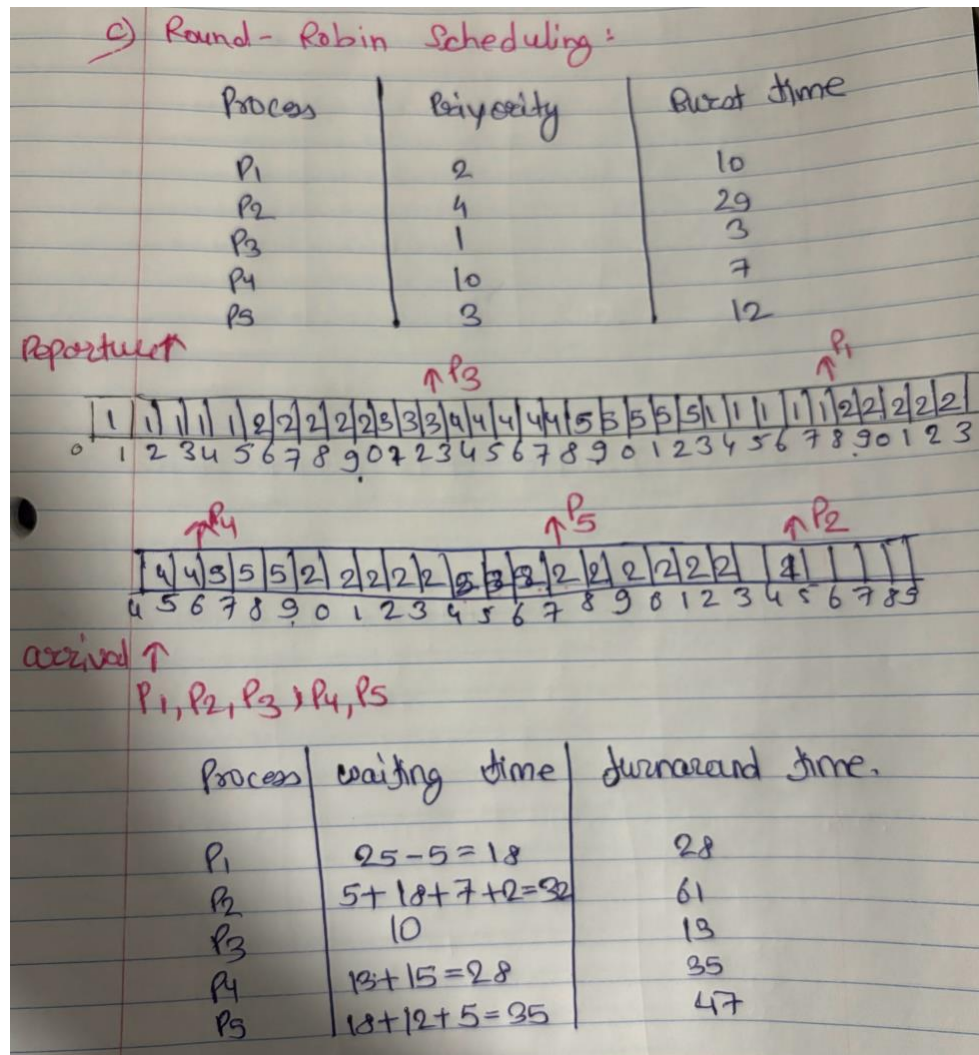 c) Round-Robin Scheduling:
Process Priyority Burst time
P1 2 10
P2 4 29
P3 1 3
P4 10 7
P5 3 12
↑P3 ↑P1
1 1 1 1 1 2 2 2 2 2 3 3 3 4 4 4 4 4 5 5 5 5 5 1 1 1 1 1 2 2 2 2 2
0 1 2 3 4 5 6 7 8 9 0 1 2 3 4 5 6 7 8 9 0 1 2 3 4 5 6 7 8 9 0 1 2 3
↑P4 ↑P5 ↑P2
4 4 5 5 5 2 2 2 2 2 2 2 2 2 2 2
4 5 6 7 8 9 0 1 2 3 4 5 6 7 8 9 0 1 2 3 4 5 6 7 8 9
arrival ↑
P1, P2, P3, P4, P5
Process waiting time turnaround time.
P1 25-5=18 28
P2 5+18+7+2=32 61
P3 10 13
P4 13+15=28 35
P5 18+12+5=35 47